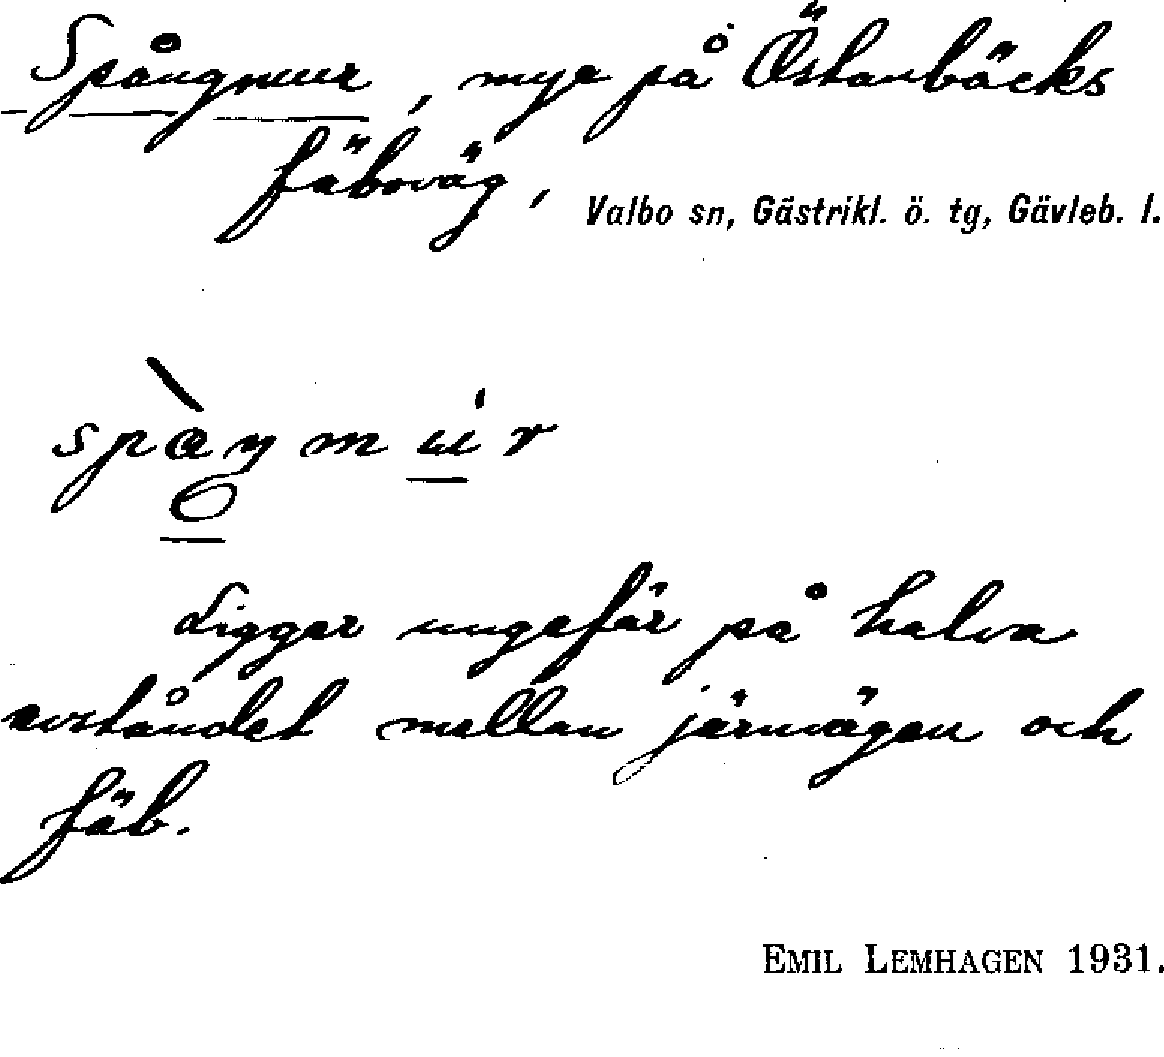 Spångmur, myr på Östanbäcks
fäboväg,
Valbo sn, Gästrikl. ö. tg, Gävleb. l.
Ligger ungefär på halva
avståndet mellan järnvägen och
fäb.
EMIL LEMHAGEN 1931.